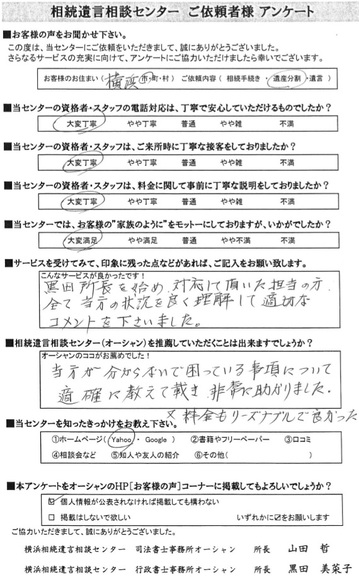 相続遺言相談センター ご依頼者様 アンケート
■お客様の声をお聞かせ下さい。
この度は、当センターにご依頼をいただきまして、誠にありがとうございました。
さらなるサービスの充実に向けて、アンケートにご協力いただけましたら幸いでございます。
お客様のお住まい( 横浜 市・町・村) ご依頼内容( 相続手続き ・遺産分割・遺言)
■当センターの資格者・スタッフの電話対応は、丁寧で安心していただけるものでしたか?
大変丁寧 やや丁寧 普通 やや雑 不満
■当センターの資格者・スタッフは、ご来所時に丁寧な接客をしておりましたか?
大変丁寧 やや丁寧 普通 やや雑 不満
■当センターの資格者・スタッフは、料金に関して事前に丁寧な説明をしておりましたか?
大変丁寧 やや丁寧 普通 やや雑 不満
■当センターでは、お客様の"家族のように"をモットーにしておりますが、いかがでしたか?
大変満足 やや満足 普通 やや不満 不満
■サービスを受けてみて、印象に残った点などがあれば、ご記入をお願い致します。
こんなサービスが良かったです!
黒田所長を始め、対応して頂いた担当の方、
全て当方の状況を良く理解して適切な
コメントを下さいました。
■相続遺言相談センター(オーシャン)を推薦していただくことは出来ますでしょうか?
オーシャンのココがお薦めでした!
当方が分からないで困っている事項について
適確に教えて戴き、非常に助かりました。
又料金もリーズナブルで良かった
■当センターを知ったきっかけをお教え下さい。
①ホームページ( Yahoo ・ Google ) ②書籍やフリーペーパー ③口コミ
④相談会など ⑤知人や友人の紹介 ⑥その他( )
■本アンケートをオーシャンのHP[お客様の声]コーナーに掲載してもよろしいでしょうか?
☑ 個人情報が公表されなければ掲載しても構わない
□ 掲載はしないで欲しい いずれかに☑をお願いします
ご協力いただきまして、誠にありがとうございました。
横浜相続遺言相談センター 司法書士事務所オーシャン 所長 山田 哲
横浜相続遺言相談センター 行政書士事務所オーシャン 所長 黒田 美菜子